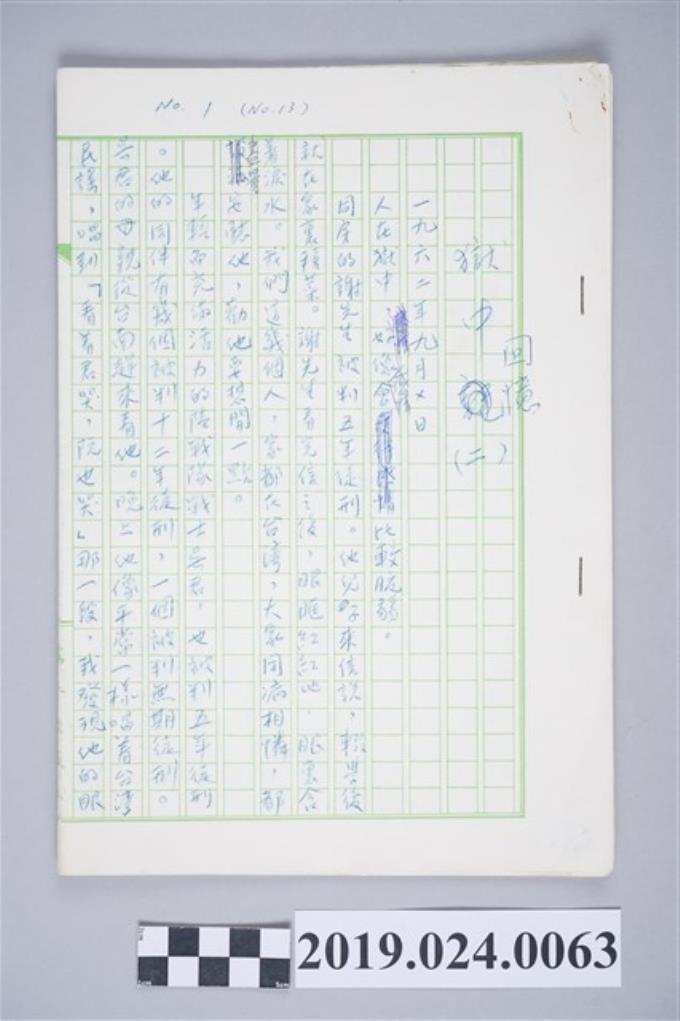 No. 1 (No.13)
獄中回憶(二)
一九六二年九月×日
人在獄中 好像會比較脆弱。
同房的謝先生被判五年徒刑。他兒子來信說,輟學後
就在家裏種菜。謝先生看完信之後,眼眶紅紅地,眼裏含
著淚水。我們這幾個人,家都在台灣,大家同病相憐,都
安慰他,勸他要想開一點。
年輕而充滿活力的陸戰隊戰士吳君,也被判五年徒刑
。他的同伴有幾個被判十二年徒刑,一個被判無期徒刑。
吳君的母親從台南趕來看他。晚上他像平常一樣唱着台灣
民謠,唱到「看着君哭,阮也哭」那一段,我發現他的眼
2019.024.0063